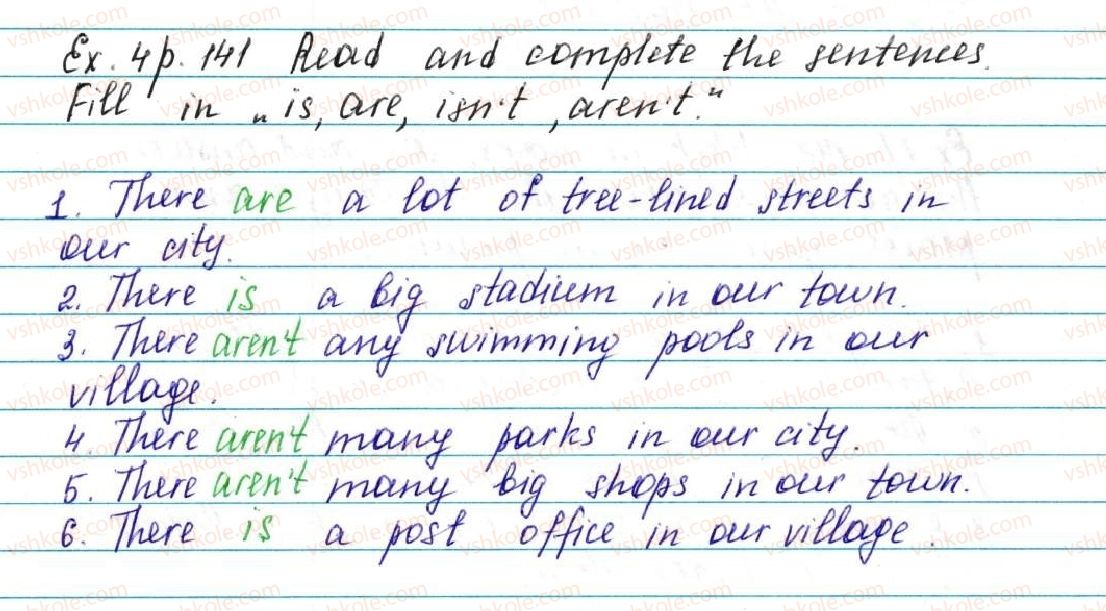 Ex. 4 p. 141 Read and complete the sentences.
Fill in „is, are, isn't, aren't."
1. There are a lot of tree-lined streets in
our city.
2. There is a big stadium in our town.
3. There aren't any swimming pools in our
village.
4. There aren't many parks in our city.
5. There aren't many big shops in our town.
6. There is a post office in our village.
vshkole.com